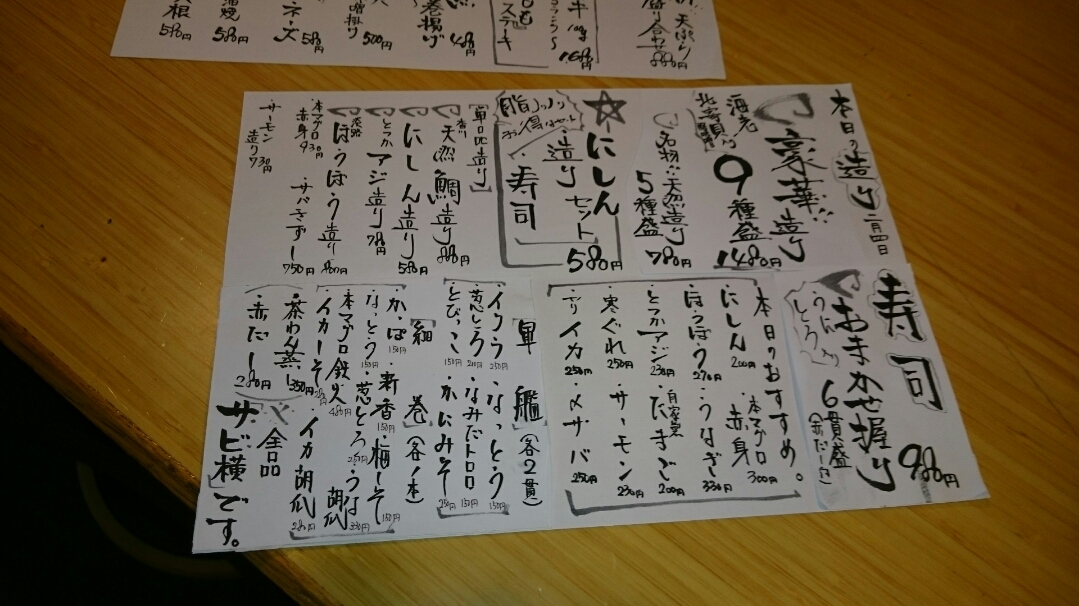 本日の造り 二月四日
豪華造り
海老
北寄貝入
9種盛
1480円
名物!!天然造り
5種盛
780円
☆にしん
造り
セット
寿司
580円
お得なセット
【単品造り】
天然鯛造り 880円
にしん造り 580円
とつかアジ造り 780円
淡路
ほうぼう造り
本マグロ赤身 930円
・サバきずし 750円
サーモン造り 930円
寿司
おまかせ握り
うに、とろ入り
6貫盛
(赤だし付)
980円
本日のおすすめ。
・にしん 200円
・本マグロ赤身 300円
・ほうぼう 270円
・うなぎ 330円
・とつかアジ 230円
・自家製たまご 200円
・寒ぐれ 250円
・サーモン 230円
・アリイカ 250円
・〆サバ 250円
【軍艦】(各2貫)
・イクラ 250円
・なっとう 150円
・葱とろ 200円
・なみだトロロ 150円
・とびっこ 150円
・かにみそ 250円
【細巻】(各1本)
・かっぱ 150円
・新香 150円
・梅しそ 150円
・なっとう 150円
・葱とろ 250円
・うな胡瓜 330円
・本マグロ鉄火 480円
・イカしそ 280円
・イカ胡瓜 280円
・茶わん蒸し 350円
・赤だし 280円
※全品
サビ横です。
天ぷら
盛り合わせ
880円
ステーキ
1680円
巻揚げ
480円
500円
580円
580円
580円